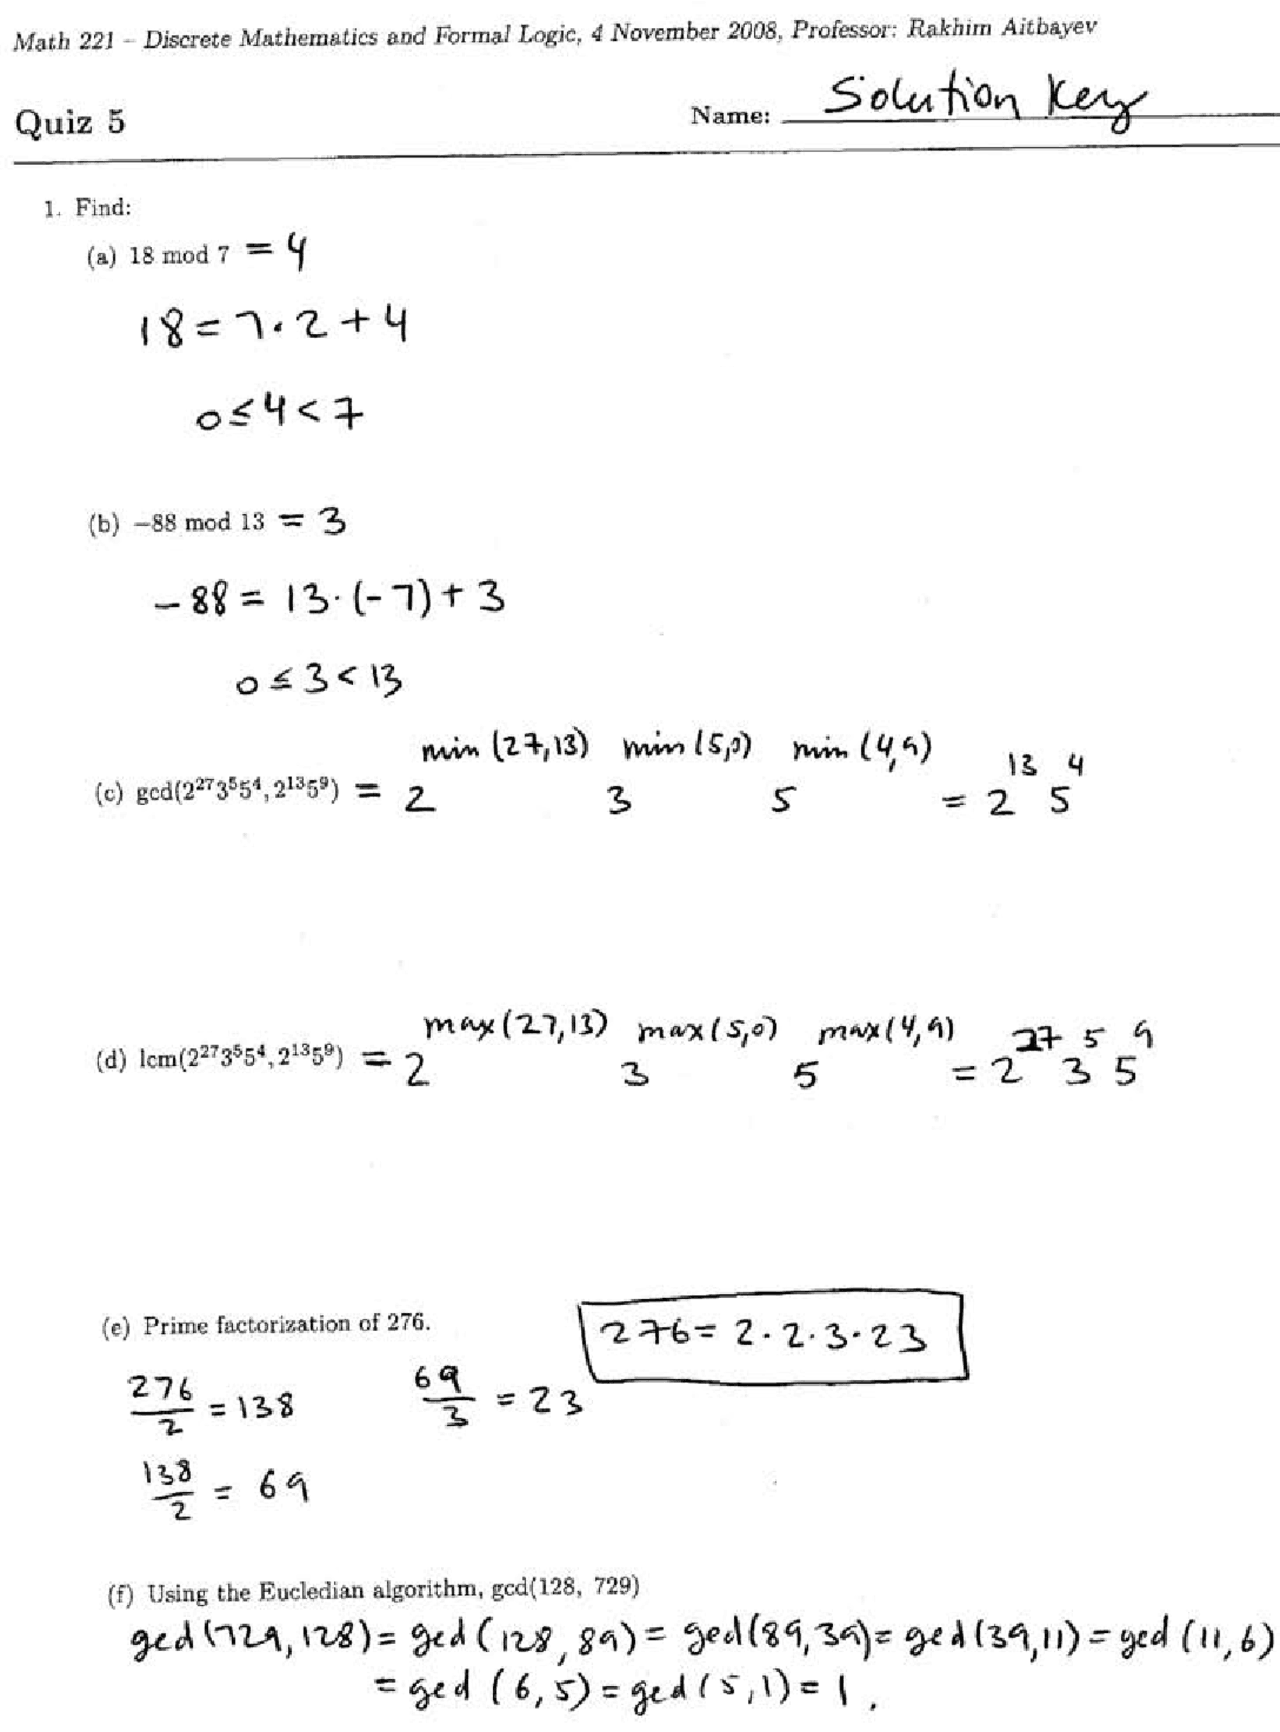 Math 221 – Discrete Mathematics and Formal Logic, 4 November 2008, Professor: Rakhim Aitbayev
Quiz 5 Name: Solution Key
1. Find:
(a) 18 mod 7 = 4
18 = 7·2 + 4
0 ≤ 4 < 7
(b) −88 mod 13 = 3
−88 = 13·(−7) + 3
0 ≤ 3 < 13
(c) gcd(2²⁷3⁵5⁴, 2¹³5⁹) = 2^min(27,13) 3^min(5,0) 5^min(4,9) = 2¹³ 5⁴
(d) lcm(2²⁷3⁵5⁴, 2¹³5⁹) = 2^max(27,13) 3^max(5,0) 5^max(4,9) = 2²⁷ 3⁵ 5⁹
(e) Prime factorization of 276. 276 = 2·2·3·23
276/2 = 138 69/3 = 23
138/2 = 69
(f) Using the Eucledian algorithm, gcd(128, 729)
gcd(729, 128) = gcd(128, 89) = gcd(89, 39) = gcd(39, 11) = gcd(11, 6)
= gcd(6, 5) = gcd(5, 1) = 1.